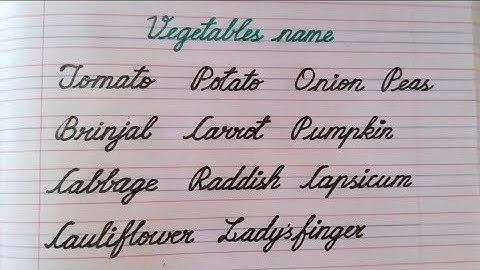 Vegetables name
Tomato Potato Onion Peas
Brinjal Carrot Pumpkin
Cabbage Raddish Capsicum
Cauliflower Lady'sfinger